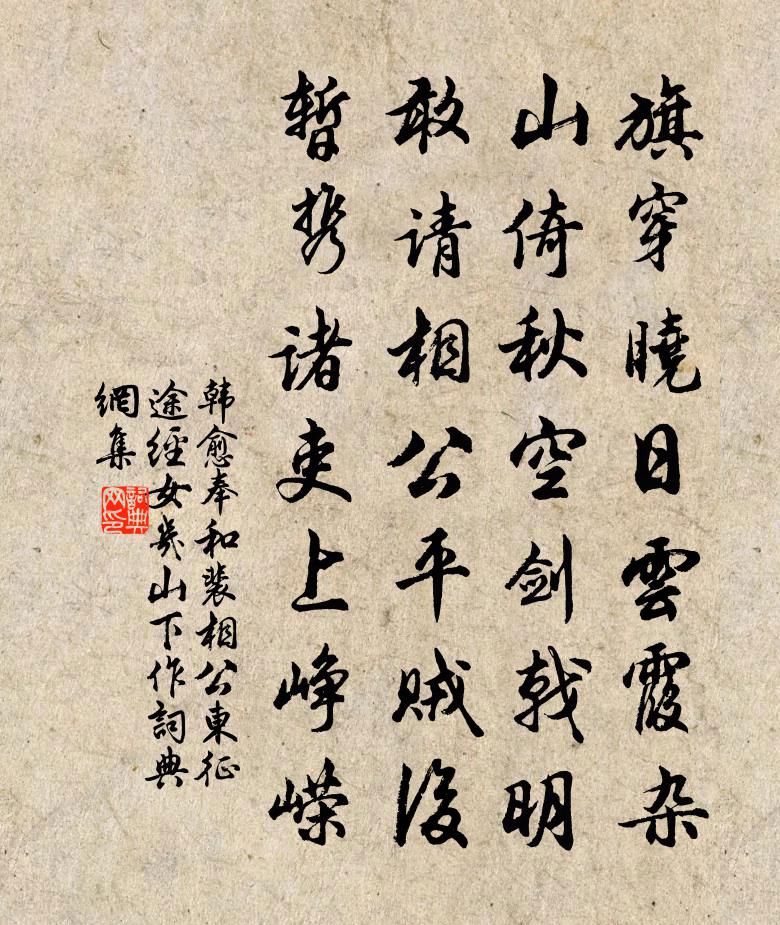 旗穿曉日雲霞杂
山倚秋空剑戟明
敢请相公平贼後
暂携诸吏上峥嵘
韩愈奉和裴相公東征
途經女幾山下作詞典
網集
詞典
网印